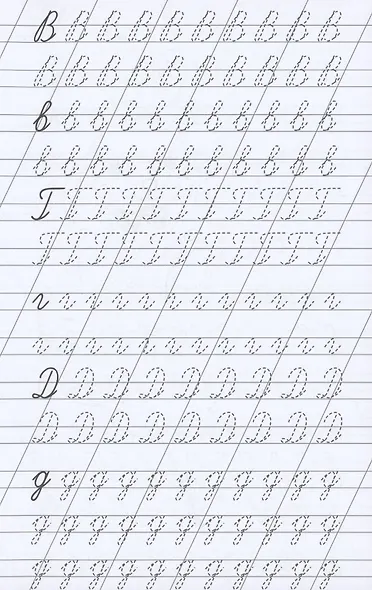 В В В В В В В В В В
В В В В В В В В В В
в в в в в в в в в в в
в в в в в в в в в в в
Г Г Г Г Г Г Г Г Г Г Г
Г Г Г Г Г Г Г Г Г Г Г
г г г г г г г г г г г г
г г г г г г г г г г г г
Д Д Д Д Д Д Д Д Д
Д Д Д Д Д Д Д Д Д
д д д д д д д д д д д
д д д д д д д д д д д
д д д д д д д д д д д